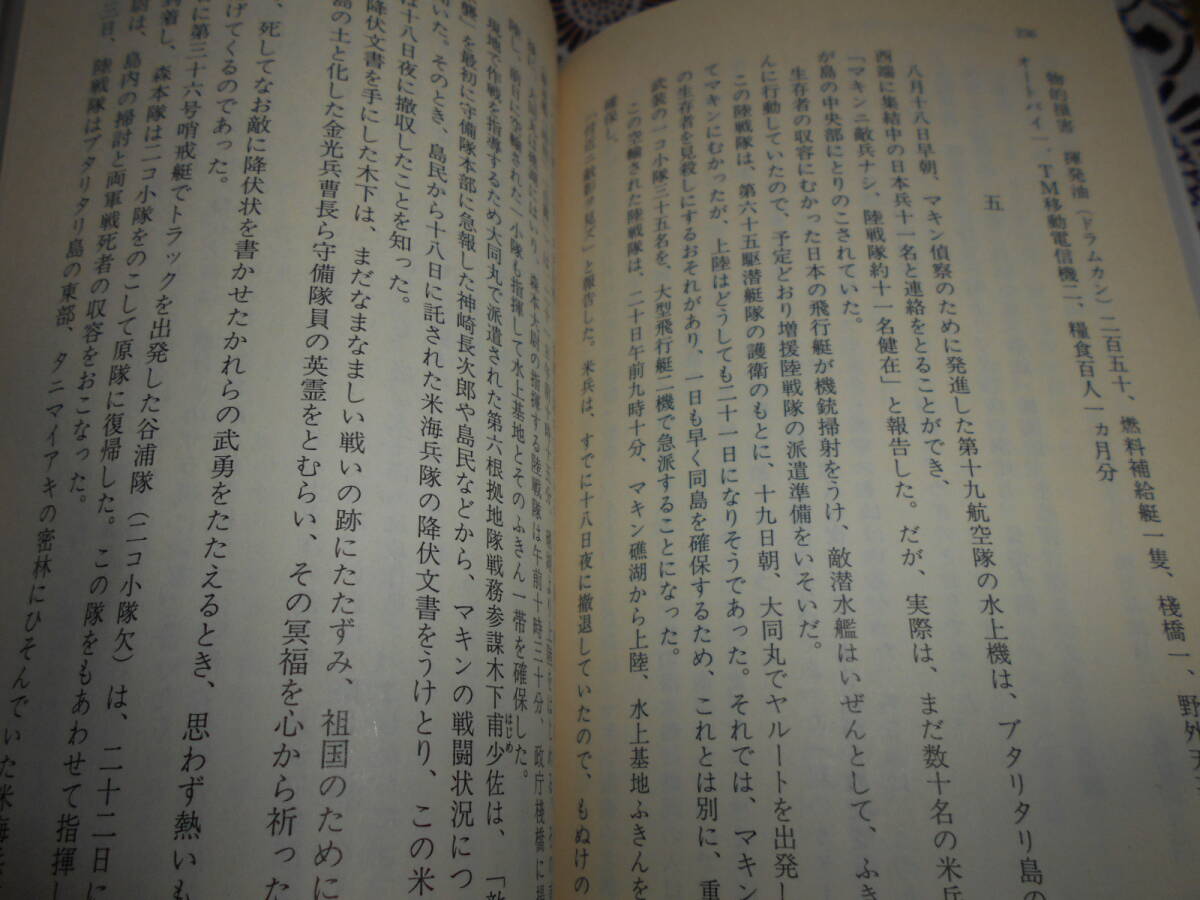 物的損害 揮発油（ドラムカン）二百五十、燃料補給艇一隻、棧橋一、野外
オートバイ一、TM移動電信機二、糧食百人一ヵ月分
五
八月十八日早朝、マキン偵察のために発進した第十九航空隊の水上機は、ブタリタリ島の
西端に集結中の日本兵十一名と連絡をとることができ、
「マキンニ敵兵ナシ、陸戦隊約十一名健在」と報告した。だが、実際は、まだ数十名の米兵
が島の中央部にとりのこされていた。
生存者の収容にむかった日本の飛行艇が機銃掃射をうけ、敵潜水艦はいぜんとして、ふき
んに行動していたので、予定どおり増援陸戦隊の派遣準備をいそいだ。
この陸戦隊は、第六十五駆潜艇隊の護衛のもとに、十九日朝、大同丸でヤルートを出発し
てマキンにむかったが、上陸はどうしても二十一日になりそうであった。それでは、マキン
の生存者を見殺しにするおそれがあり、一日も早く同島を確保するため、これとは別に、重
武装の一コ小隊三十五名を、大型飛行艇二機で急派することになった。
この空輸された陸戦隊は、二十日午前九時十分、マキン礁湖から上陸、水上基地ふきんを
確保し、
「付近ニ敵影ヲ見ズ」と報告した。米兵は、すでに十八日夜に撤退していたので、もぬけの
陸し、前日に空輸された一小隊も指揮して水上基地とそのふきん一帯を確保した。
現地で作戦を指導するため大同丸で派遣された第六根拠地隊戦務参謀木下甫少佐は、「敵
襲」を最初に守備隊本部に急報した神崎長次郎や島民などから、マキンの戦闘状況につ
いた。そのとき、島民から十八日に託された米海兵隊の降伏文書をうけとり、この米
は十八日夜に撤収したことを知った。
降伏文書を手にした木下は、まだなまなましい戦いの跡にたたずみ、祖国のために
島の土と化した金光兵曹長ら守備隊員の英霊をとむらい、その冥福を心から祈った
、死してなお敵に降伏状を書かせたかれらの武勇をたたえるとき、思わず熱いも
げてくるのであった。
に第三十六号哨戒艇でトラックを出発した谷浦隊（二コ小隊欠）は、二十二日に
到着し、森本隊は二コ小隊をのこして原隊に復帰した。この隊をもあわせて指揮し
尉は、島内の掃討と両軍戦死者の収容をおこなった。
三日、陸戦隊はブタリタリ島の東部、タニマイアキの密林にひそんでいた米海兵